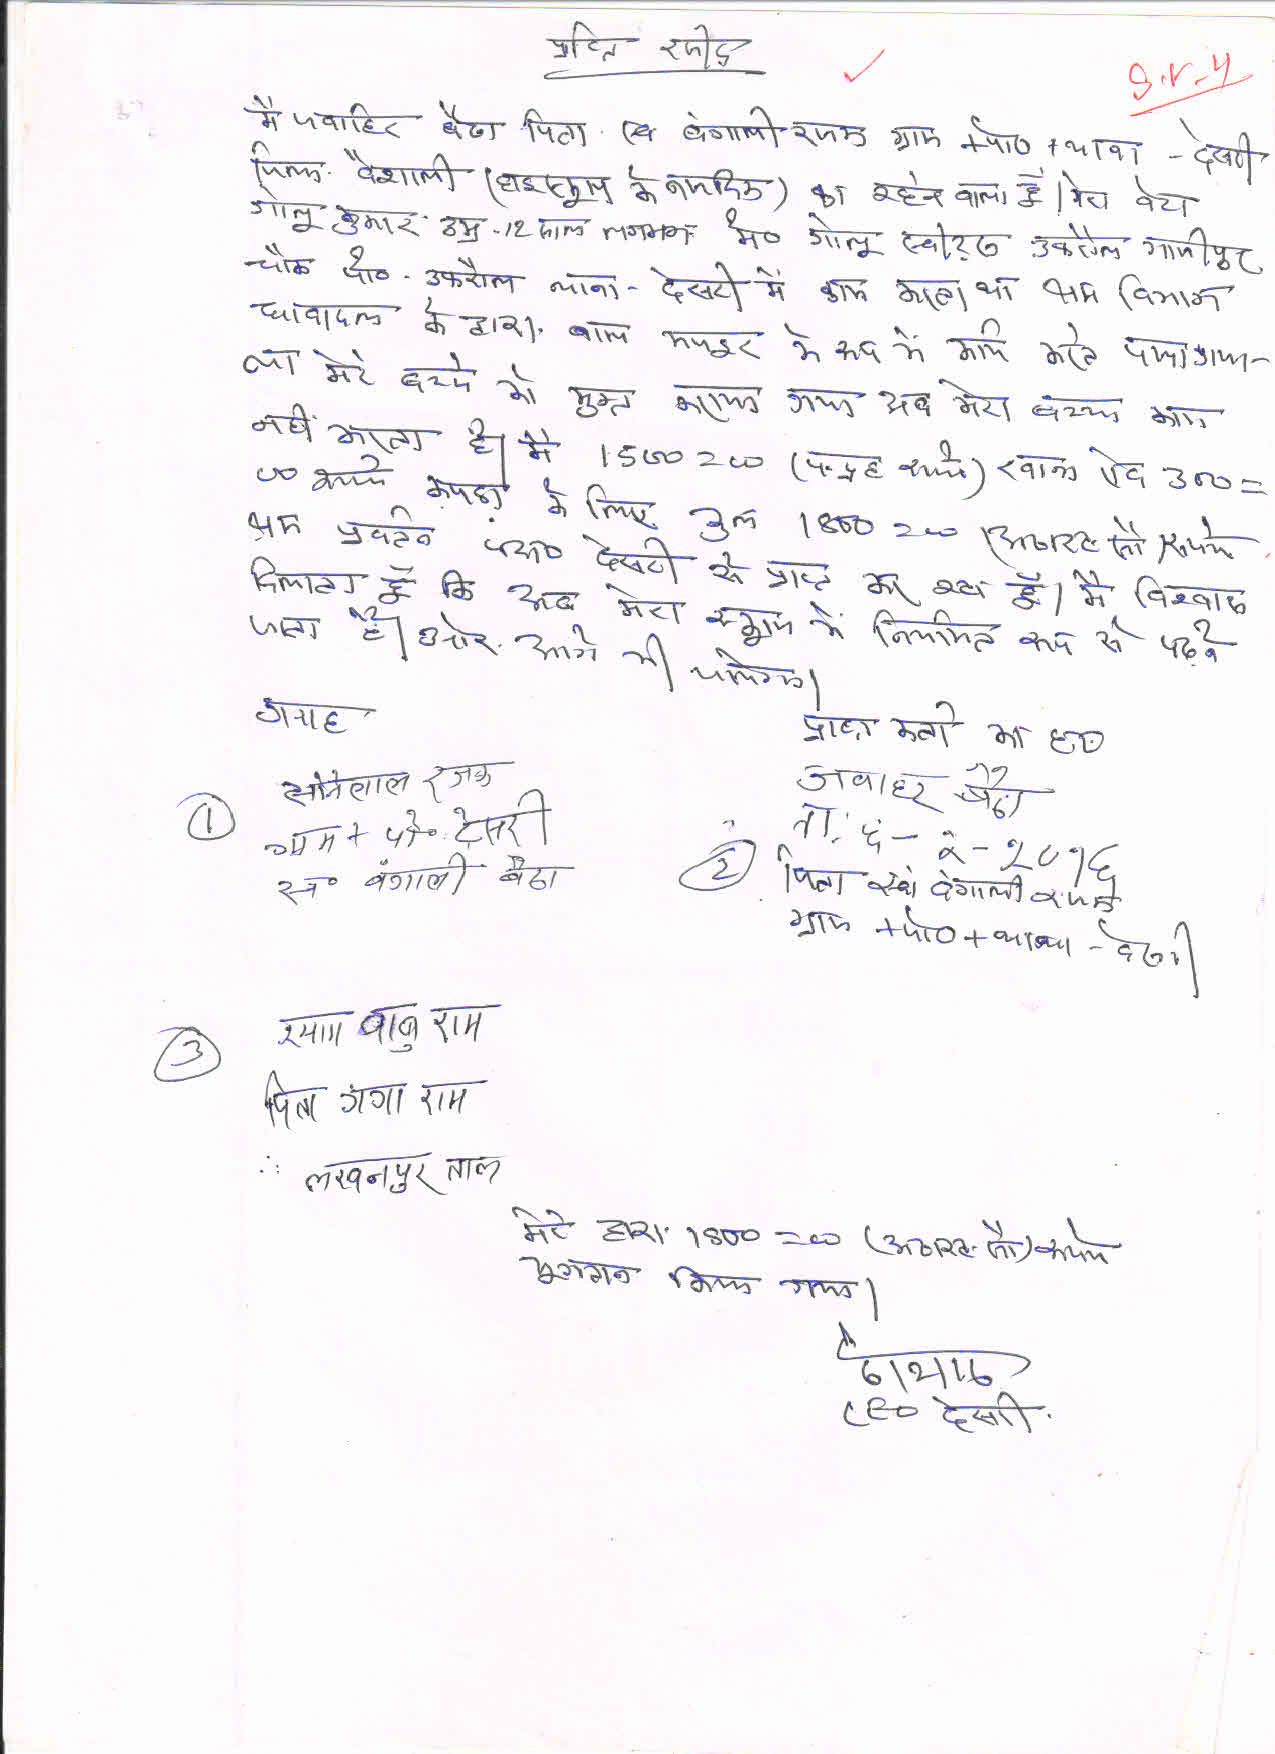 प्राप्ति रसीद
S.N-4
मैं जवाहिर बैठा पिता स्व बंगाली रजक ग्राम +पो० + थाना - देसरी
जिला वैशाली (हाइस्कूल के नजदिक) का रहने वाला हूँ। मेरा बेटा
गोलू कुमार उम्र -12 साल लगभग मे० गोलू स्वीट्स उफरौल गाजीपुर
चौक पो० - उफरौल थाना - देसरी में काम करता था श्रम विभाग
धावादल के द्वारा बाल मजदुर के रूप में कार्य करते पाया गया
था मेरे बच्चे को मुक्त कराया गया अब मेरा बच्चा काम
नहीं करता है। मैं 1500=00 (पन्द्रह रूपये) खाना ऐवं 300=
00 रूपये कपड़ा के लिए कुल 1800=00 (अठारह सौ) रूपये
श्रम प्रवर्तन पदा० देसरी से प्राप्त कर रहा हूँ। मैं विश्वास
दिलाता हूँ कि अब मेरा स्कूल में नियमित रूप से पढ़ने
जाता है। और आगे भी जायेगा।
गवाह
प्राप्त कर्ता का ह०
सोनेलाल रजक
जवाहर बैठा
① ग्राम + पो० देसरी
ता: ६ - २ - २०१६
स्व० बंगाली बैठा
② पिता स्व० बंगाली रजक
ग्राम +पो० + थाना - देसरी
③ श्याम बाबु राम
पिता गंगा राम
लखनपुर ताल
मेरे द्वारा 1800=00 (अठारह सौ) रूपये
भुगतान किया गया।
6/2/16
LEO देसरी